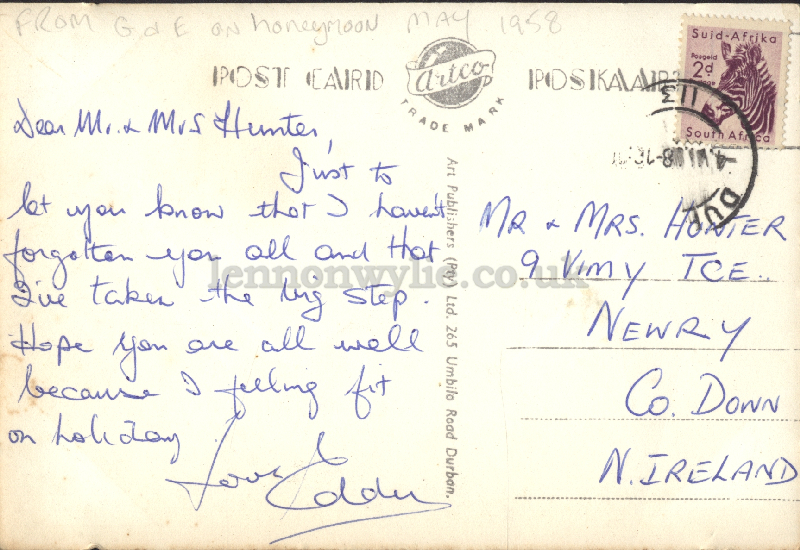 FROM G & E on honeymoon MAY 1958
POST CARD
Artco
TRADE MARK
POSKAAR
Suid-Afrika
Posgeld
2d
South Africa
Dear Mr. & Mrs Hunter,
Just to
let you know that I haven't
forgotten you all and that
I've taken the big step.
Hope you are all well
because I feeling fit
on holiday
Love
Eddie
Art Publishers (Pty) Ltd. 265 Umbilo Road Durban.
MR & MRS. HUNTER
9 VIMY TCE.
NEWRY
CO. DOWN
N. IRELAND
lennonwylie.co.uk